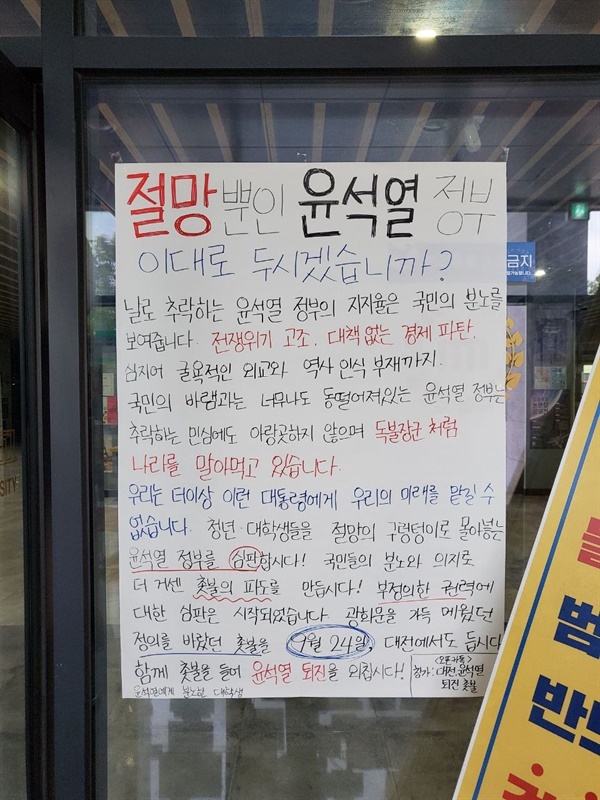 절망뿐인 윤석열 정부
이대로 두시겠습니까?
날로 추락하는 윤석열 정부의 지지율은 국민의 분노를
보여줍니다. 전쟁위기 고조. 대책 없는 경제 파탄.
심지어 굴욕적인 외교와 역사 인식 부재까지.
국민의 바램과는 너무나도 동떨어져있는 윤석열 정부는
추락하는 민심에도 아랑곳하지 않으며 독불장군 처럼
나라를 말아먹고 있습니다.
우리는 더이상 이런 대통령에게 우리의 미래를 맡길 수
없습니다. 청년·대학생들을 절망의 구렁텅이로 몰아붙는
윤석열 정부를 심판합시다! 국민들의 분노와 의지로
더 거센 촛불의 파도를 만듭시다! 부정의한 권력에
대한 심판은 시작되었습니다. 광화문을 가득 메웠던
정의를 바랐던 촛불을 9월 24일, 대전에서도 듭시다
함께 촛불을 들어 윤석열 퇴진을 외칩시다!
윤석열에게 분노한 대학생
<오픈카톡>
참가: 대전 윤석열
퇴진 촛불
금지
SITY
범
반